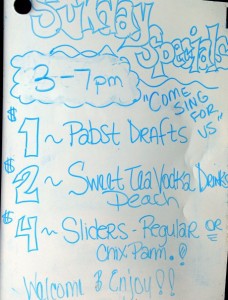 Sunday
Specials
3-7pm
"COME
SING
FOR
US"
$1 ~ Pabst Drafts
$2 ~ Sweet Tea Vodka Drinks
Peach
$4 ~ Sliders - Regular OR
Chix Parm.!
Welcome & Enjoy!!